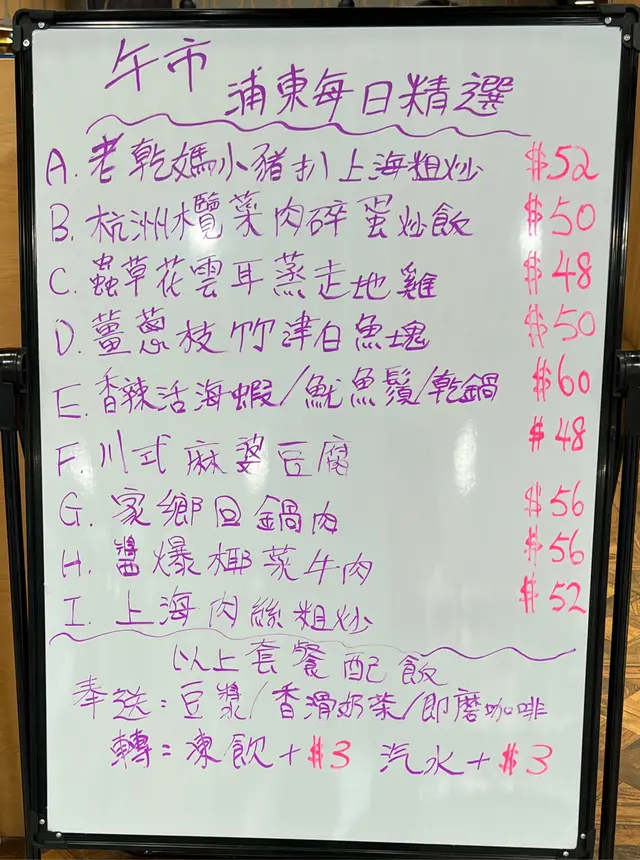 午市
浦東每日精選
A. 老乾媽小豬扒上海粗炒 $52
B. 杭洲欖菜肉碎蛋炒飯 $50
C. 蟲草花雲耳蒸走地雞 $48
D. 薑蔥枝竹津白魚塊 $50
E. 香辣活海蝦/魷魚鬚/乾鍋 $60
F. 川式麻婆豆腐 $48
G. 家鄉回鍋肉 $56
H. 醬爆椰菜牛肉 $56
I. 上海肉絲粗炒 $52
以上套餐配飯
奉送：豆漿/香滑奶茶/即磨咖啡
轉：凍飲+$3 汽水+$3